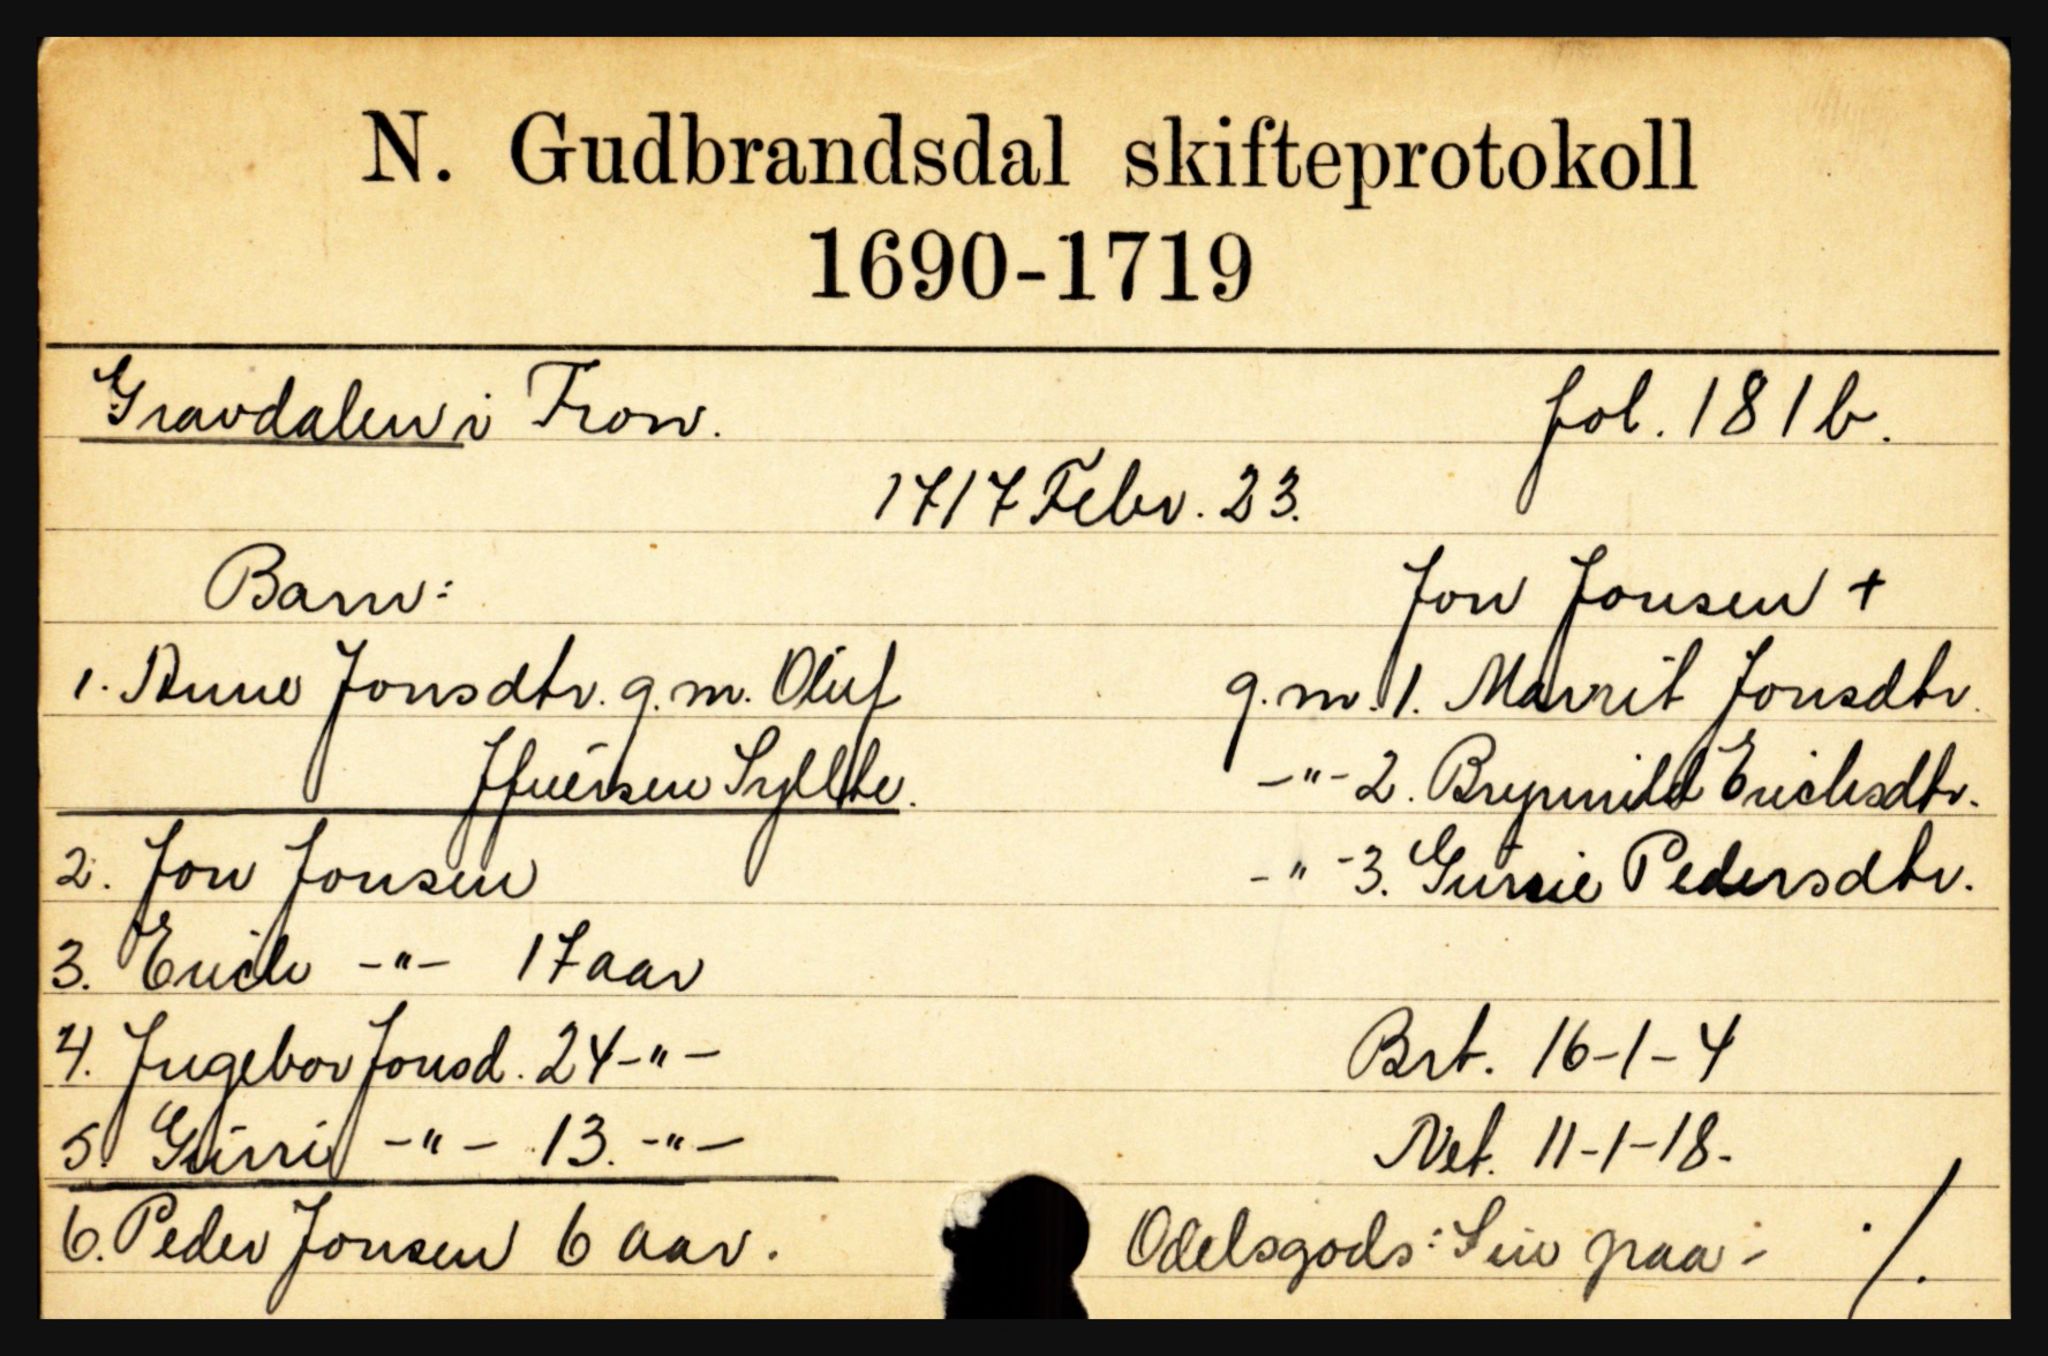 N. Gudbrandsdal skifteprotokoll
1690-1719
Gravdalen i Fron. fol. 181b.
1717 Febr. 23.
Barn: Jon Jonsen +
1. Anne Jonsdtr. g.m. Oluf g.m. 1. Marrit Jonsdtr.
Ifuersen Syllte. -"- 2. Brynnild Erichsdtr.
2. Jon Jonsen -"- 3. Gurrie Pedersdtr.
3. Erich -"- 17 aar
4. Ingebor Jonsd. 24 -"- Brt. 16-1-4
5. Gurri -"- 13. -"- Net. 11-1-18.
6. Peder Jonsen 6 aar. Odelsgods: Sin paa- ./.